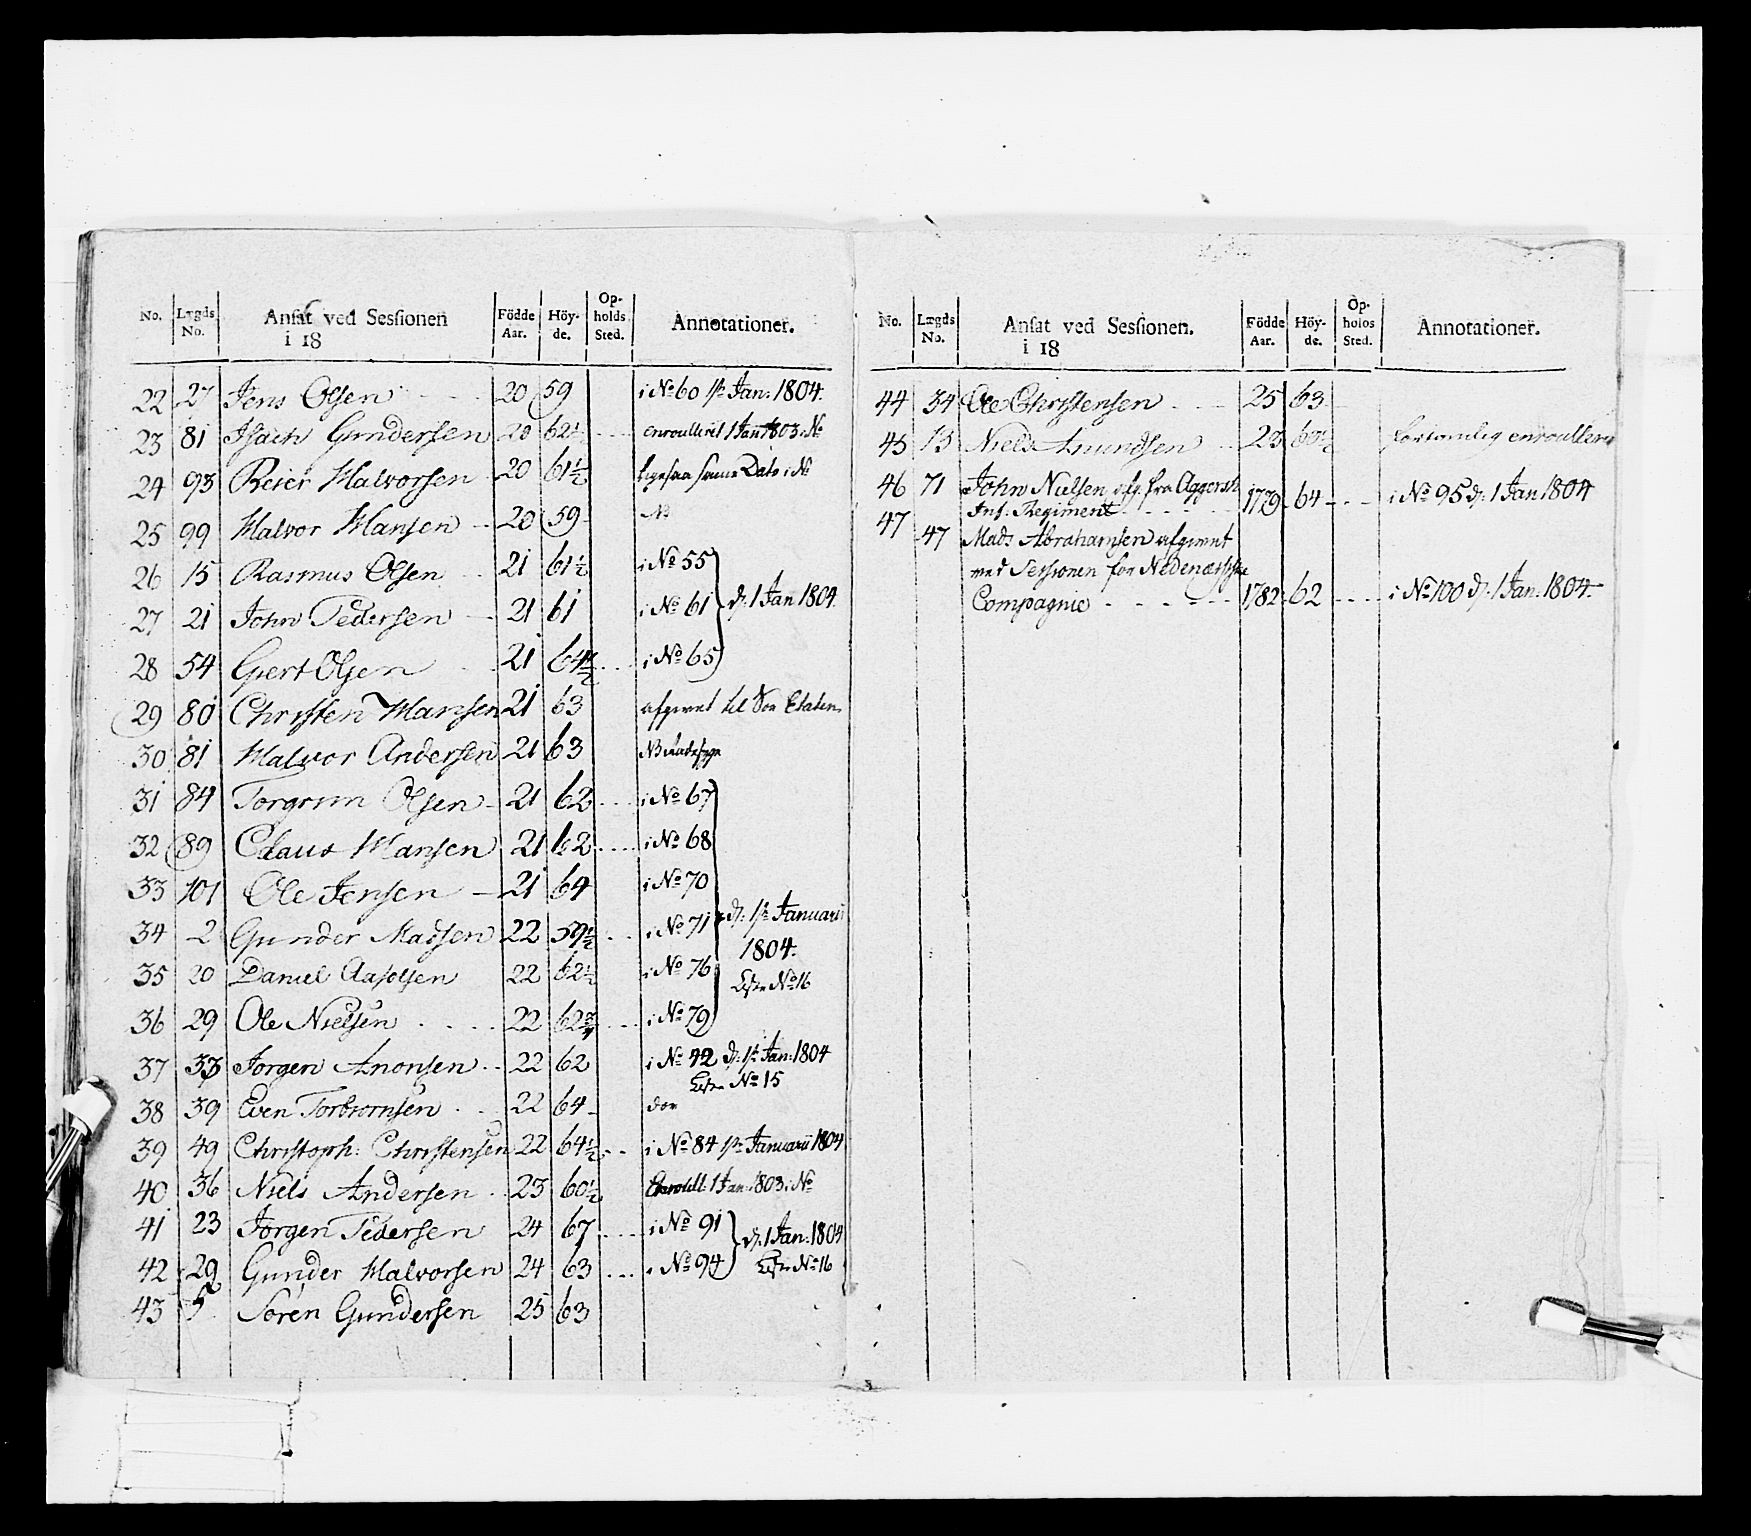 No. Lægds No. Ansat ved Sessionen i 18 Födde Aar. Höyde. Opholds Sted. Annotationer.
22 27 Jens Olsen 20 59 i No 60 1ste Jan: 1804.
23 81 Isach Gundersen 20 62½ enroulleret 1 Jan 1803 i No
24 93 Reier Halvorsen 20 61½ ligesaa samme Dato i No
25 99 Halvor Hansen 20 59
26 15 Rasmus Olsen 21 61½ i No 55
27 21 John Pedersen 21 61 i No 61 d: 1 Jan 1804.
28 54 Giert Olsen 21 64½ i No 65
29 80 Christen Hansen 21 63 afgivet til Söe Etaten
30 81 Halvor Andersen 21 63
31 84 Torgrim Olsen 21 62 i No 67
32 89 Claus Hansen 21 62 i No 68
33 101 Ole Jensen 21 64 i No 70
34 2 Gunder Madsen 22 59½ i No 71 d: 1ste Januarii
1804.
35 20 Daniel Aasolsen 22 62½ i No 76 No 16
36 29 Ole Nielsen 22 62¾ i No 79
37 33 Jörgen Anonsen 22 62 i No 42 d: 1ste Jan: 1804
No 15
38 39 Even Torbiornsen 22 64 döe
39 49 Christoph: Christensen 22 64½ i No 84 1ste Januarii 1804
40 36 Niels Andersen 23 60½ Enroull: 1 Jan: 1803 i No
41 23 Jörgen Pedersen 24 67 i No 91 d: 1 Jan: 1804
42 29 Gunder Halvorsen 24 63 i No 94 No 16
43 5 Sören Gundersen 25 63
No. Lægds No. Ansat ved Sessionen. i 18 Födde Aar. Höyde. Opholds Sted. Annotationer.
44 34 Ole Christensen 25 63
45 13 Niels Amundsen 23 60½ enroullere
46 71 John Nielsen afg. fra Aggersh
Inf: Regiment 1779 64 i No 95 d: 1 Jan 1804
47 47 Mads Abrahamsen afgivet
ved Sessionen for Nedenæsiske
Compagnie 1782 62 i No 100 d: 1 Jan: 1804